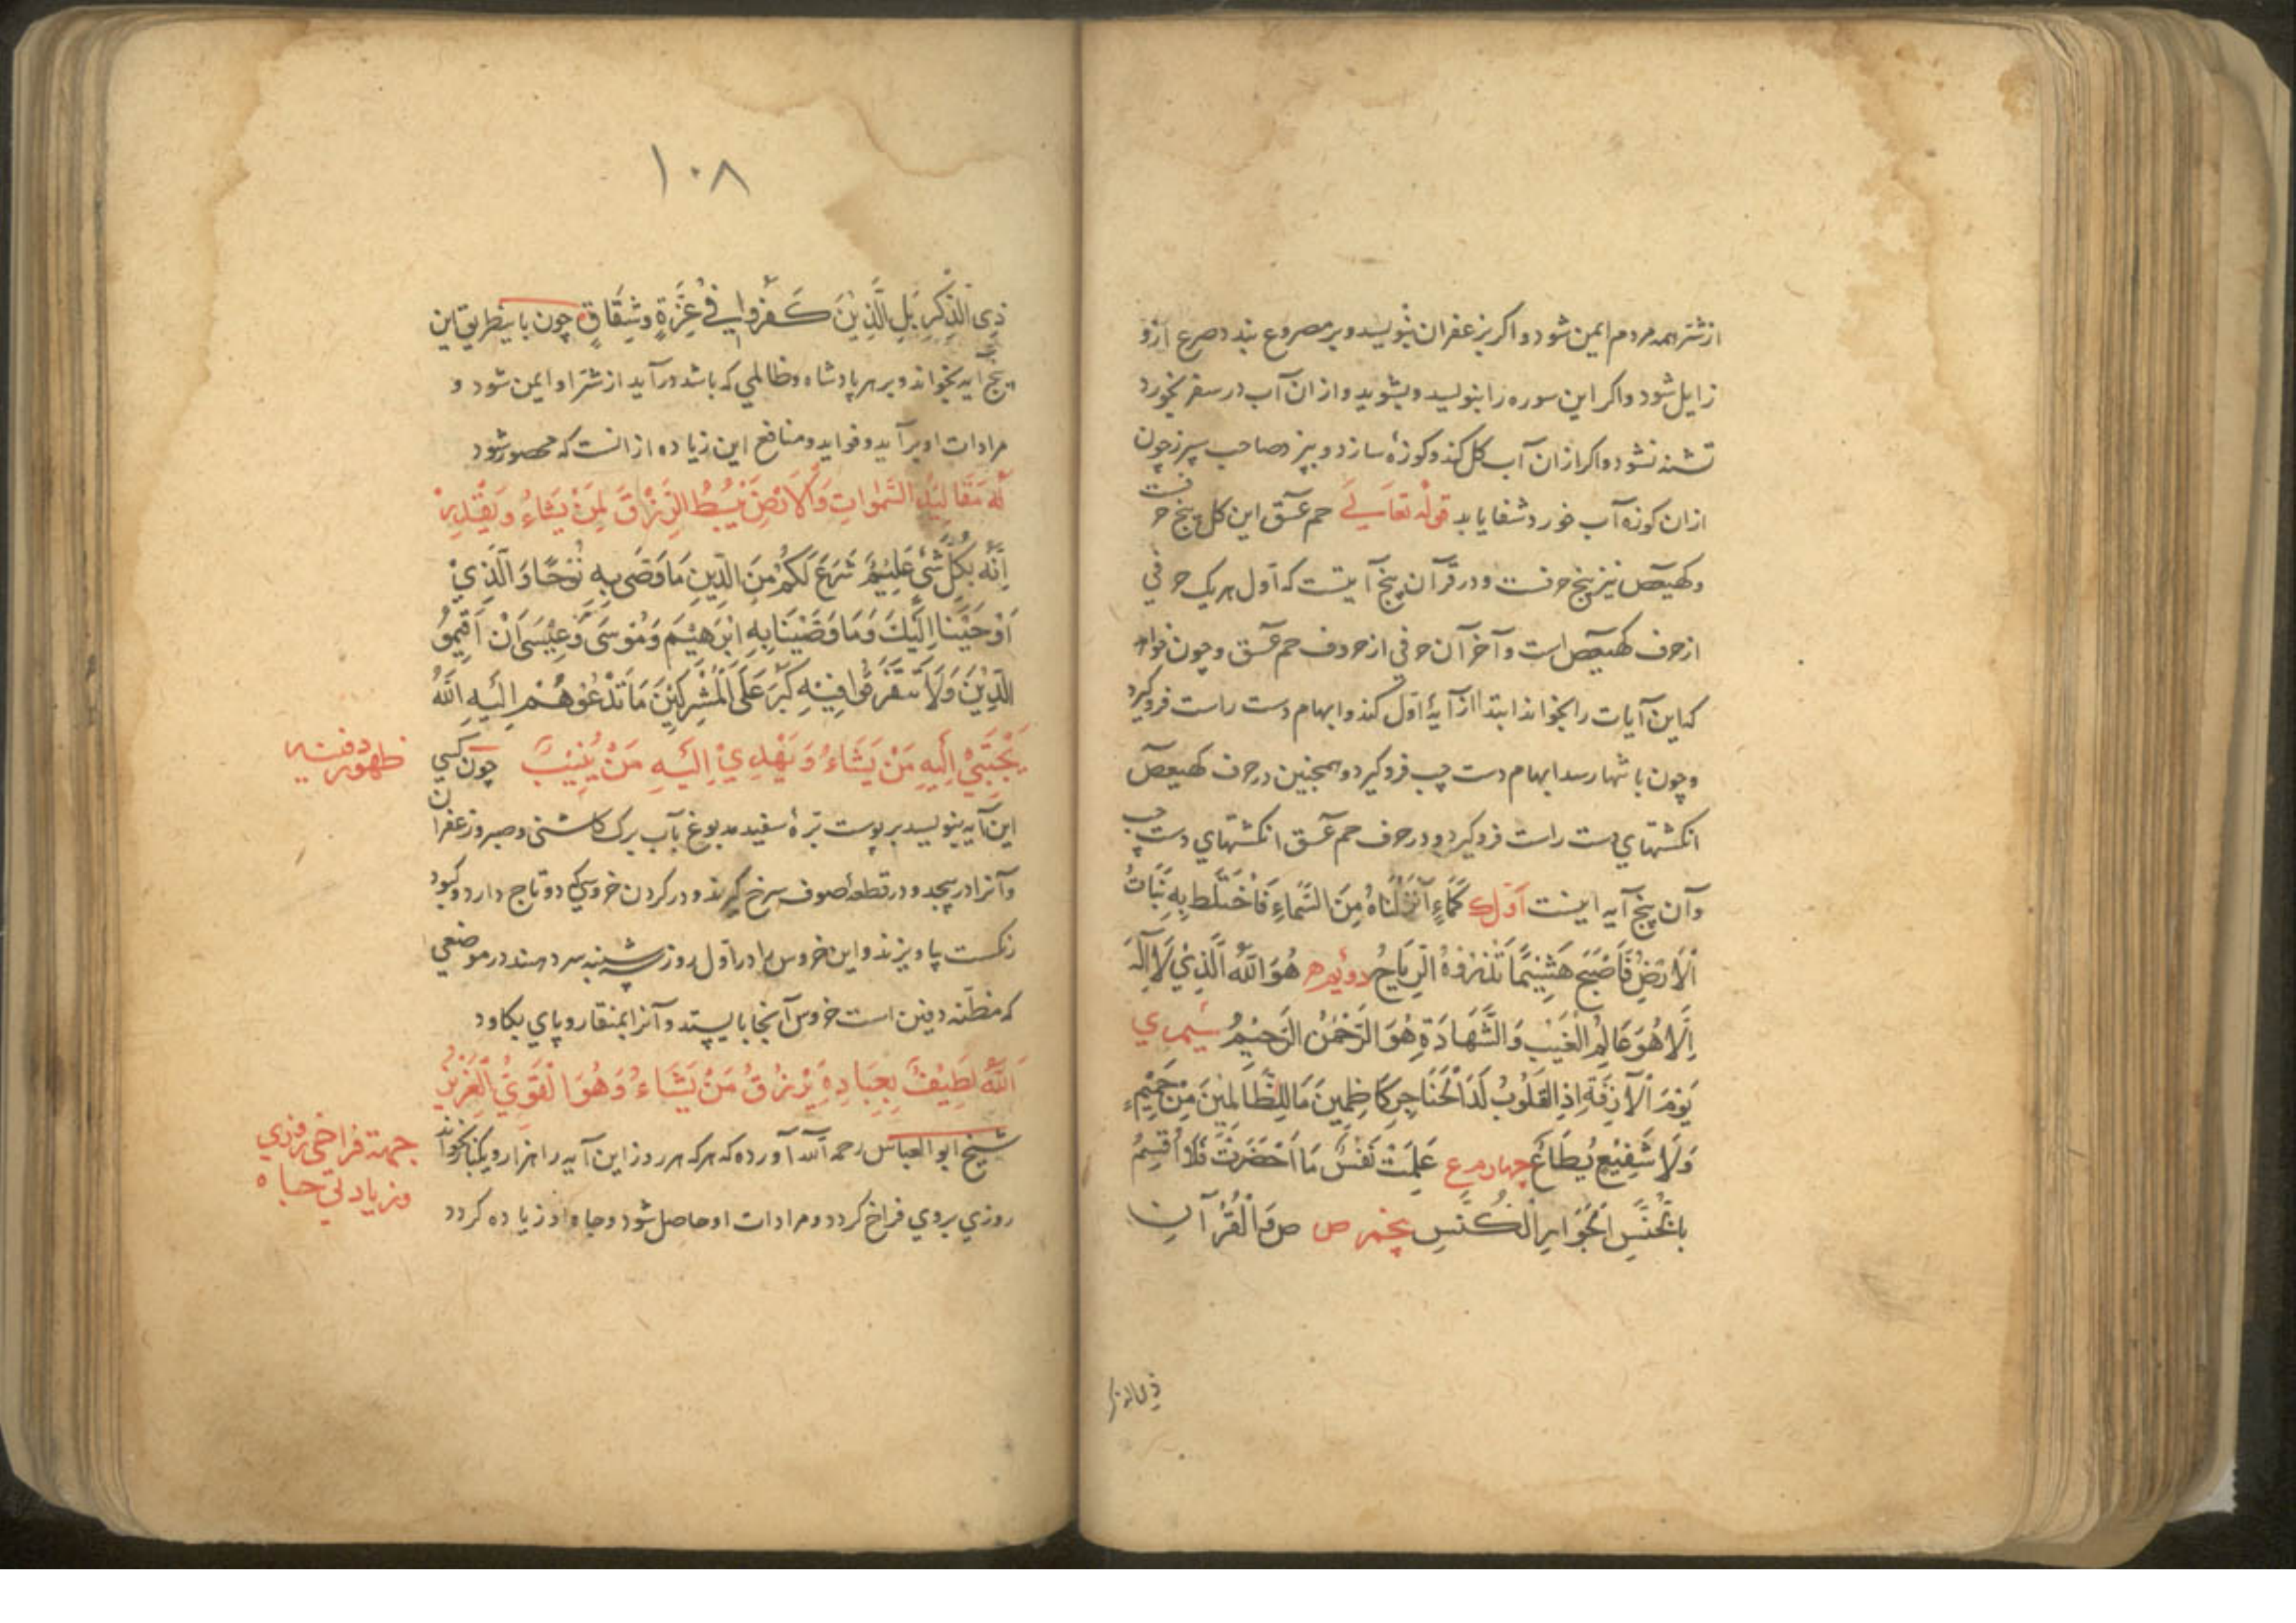 از شر همه مردم ایمن شود و اکر بزعفران بنویسد و بر مصروع بندد صرع ازو
زایل شود و اکر این سوره را بنویسد و بشوید و از ان آب در سفر بخورد
تشنه نشود و اکر ازان آب کل کند و کوزهٔ سازد و بپزد صاحب سپرز چون
ازان کوزه آب خورد شفا یابد قوله تعالی حم عسق این کل پنج حر
فست
و کهیعص نیز پنج حرفست و در قرآن پنج آیتست که اول هر یک حرفی
از حرف کهیعص است و آخر آن حرفی از حروف حم عسق و چون خواهد
که این آیات را بخواند ابتدا از آیهٔ اول کند و ابهام دست راست فرو کیرد
و چون بانتها رسد ابهام دست چپ فرو کیرد و همچنین در حرف کهیعص
انکشتهای دست راست فرو کیرد و در حرف حم عسق انکشتهای دست چپ
وآن پنج آیه اینست اول ک كَمَاءٍ أَنْزَلْنَاهُ مِنَ السَّمَاءِ فَاخْتَلَطَ بِهِ نَبَاتُ
الْأَرْضِ فَأَصْبَحَ هَشِيمًا تَذْرُوهُ الرِّيَاحُ دویم ه هُوَ اللَّهُ الَّذِي لَا إِلَهَ
إِلَّا هُوَ عَالِمُ الْغَيْبِ وَالشَّهَادَةِ هُوَ الرَّحْمَنُ الرَّحِيمُ سیم ی
يَوْمَ الْآزِفَةِ إِذِ الْقُلُوبُ لَدَا الْحَنَاجِرِ كَاظِمِينَ مَا لِلظَّالِمِينَ مِنْ حَمِيمٍ
وَلَا شَفِيعٍ يُطَاعُ چهارم ع عَلِمَتْ نَفْسٌ مَا أَحْضَرَتْ فَلَا أُقْسِمُ
بِالْخُنَّسِ الْجَوَارِ الْكُنَّسِ پنجم ص ص وَالْقُرْآنِ
ذی الذکر
۱۰۸
ذِي الذِّكْرِ بَلِ الَّذِينَ كَفَرُوا فِي عِزَّةٍ وَشِقَاقٍ چون باینطریق این
پنج آیه بخواند و بر هر پادشاه و ظالمی که باشد درآید از شر او ایمن شود و
مرادات او برآید و فواید و منافع این زیاده از انست که محصور شود
لَهُ مَقَالِيدُ السَّمَوَاتِ وَالْأَرْضِ يَبْسُطُ الرِّزْقَ لِمَنْ يَشَاءُ وَيَقْدِرُ
إِنَّهُ بِكُلِّ شَيْءٍ عَلِيمٌ شَرَعَ لَكُمْ مِنَ الدِّينِ مَا وَصَّى بِهِ نُوحًا وَالَّذِي
أَوْحَيْنَا إِلَيْكَ وَمَا وَصَّيْنَا بِهِ إِبْرَهِيمَ وَمُوسَى وَعِيسَى أَنْ أَقِيمُوا
الدِّينَ وَلَا تَتَفَرَّقُوا فِيهِ كَبُرَ عَلَى الْمُشْرِكِينَ مَا تَدْعُوهُمْ إِلَيْهِ اللَّهُ
يَجْتَبِي إِلَيْهِ مَنْ يَشَاءُ وَيَهْدِي إِلَيْهِ مَنْ يُنِيبُ چون کسی
ظهور دفینه
این آیه بنویسد بر پوست برهٔ سفید مدبوغ بآب برک کاسنی و صبر و زعفران
وآنرا در پیچد و در قطعهٔ صوف سرخ کیرند و در کردن خروسی که دو تاج دارد و کبود
رنکست بیاویزند و این خروس را در اول روز سه شنبه سر دهند در موضعی
که مظنه دفین است خروس آنجا بایستد و آنرا بمنقار و پای بکاود
اللَّهُ لَطِيفٌ بِعِبَادِهِ يَرْزُقُ مَنْ يَشَاءُ وَهُوَ الْقَوِيُّ الْعَزِيزُ
شیخ ابو العباس رحمه الله آورده که هر که هر روز این آیه را هزار و یکبار بخواند
جهة فراخی روزی
وزیادتی جاه
روزی بروی فراخ کردد و مرادات او حاصل شود و جاه او زیاده کردد